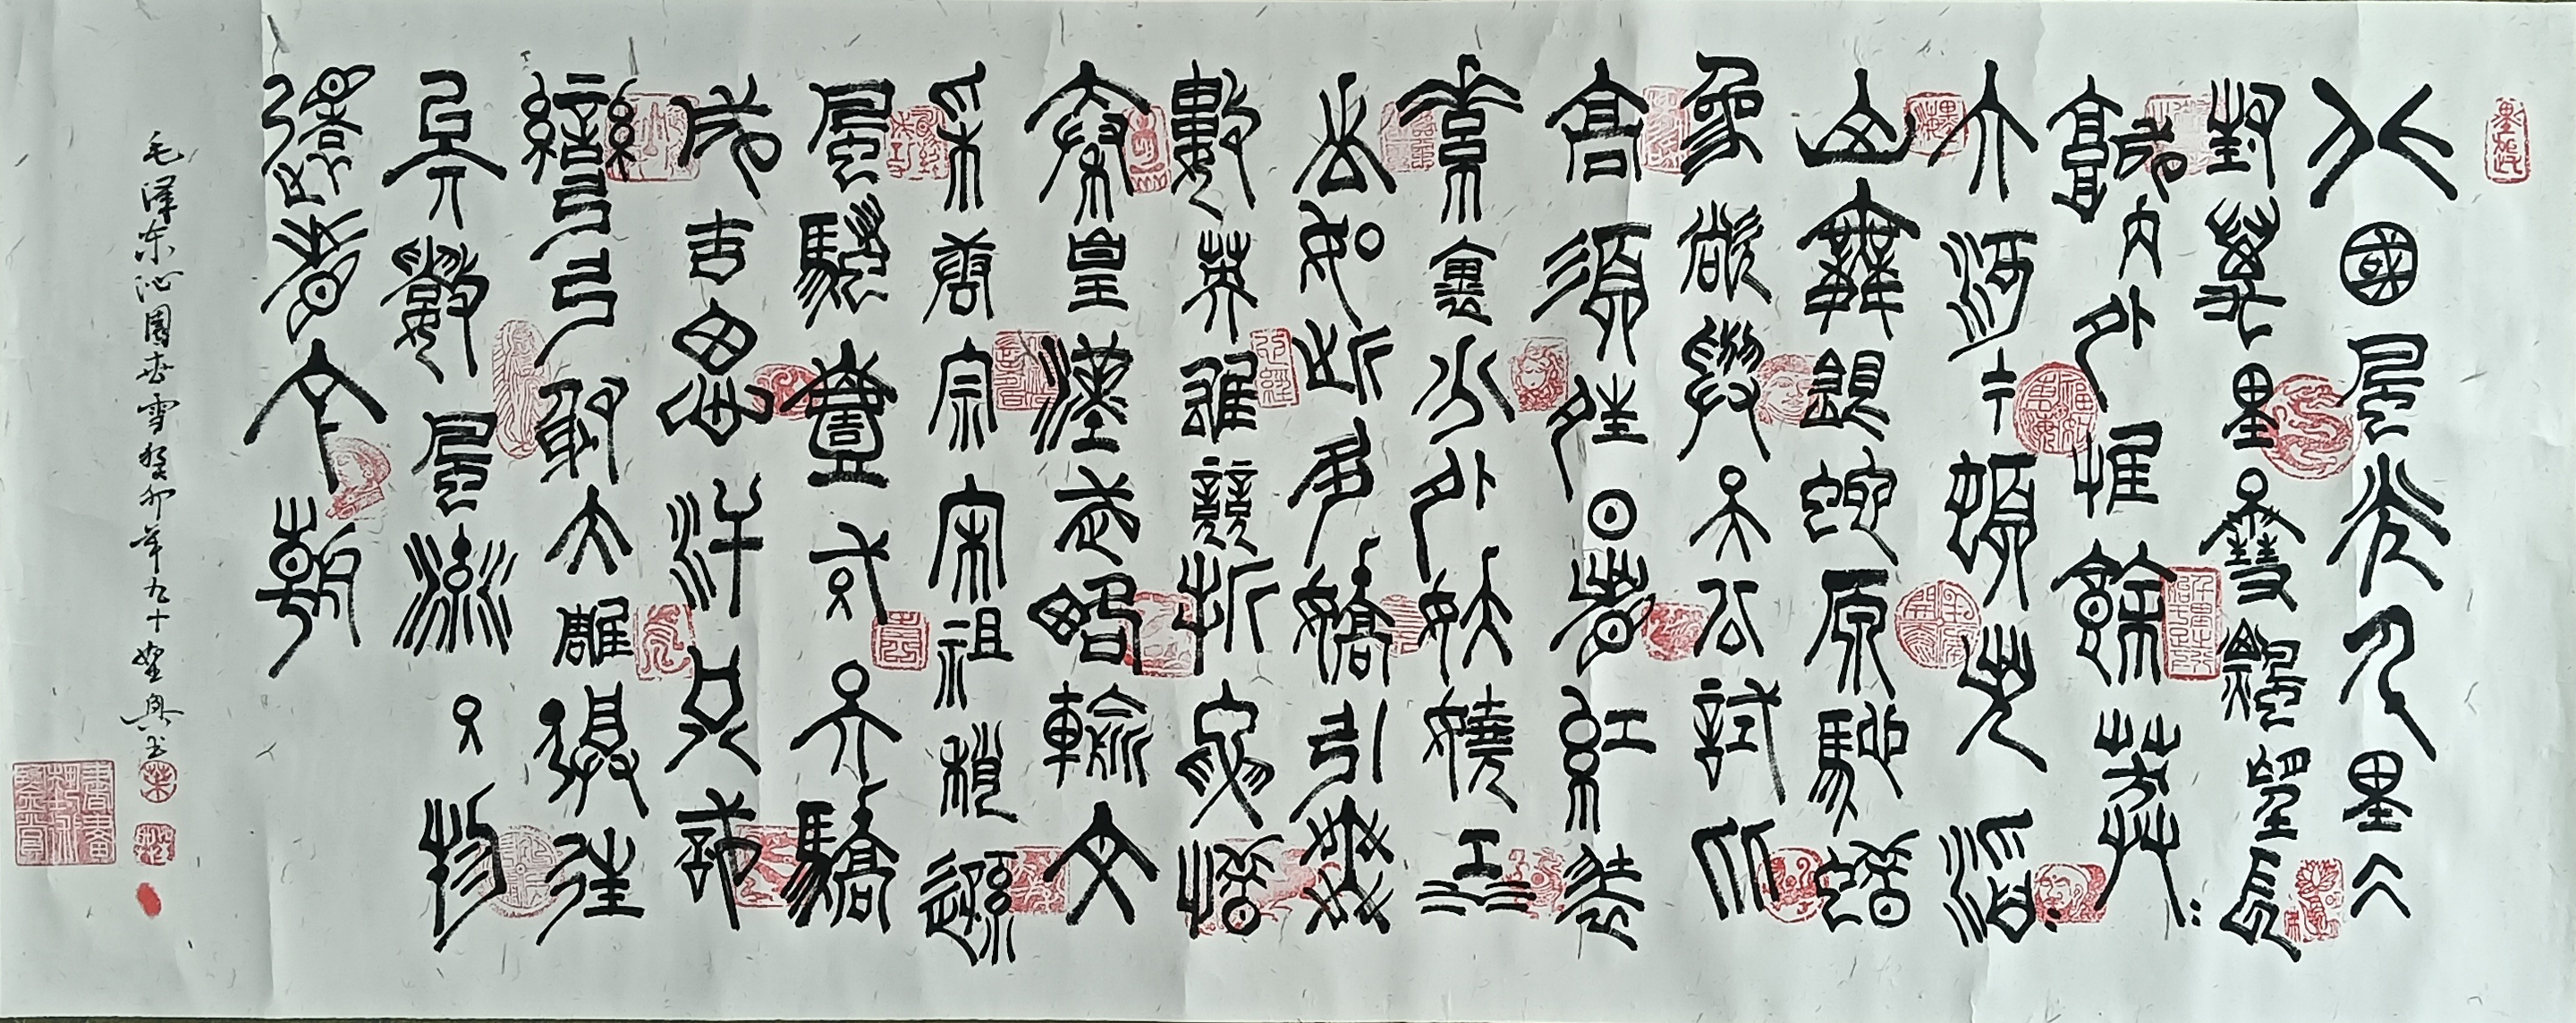 北國風光千里冰
封萬里雪飄望長
城內外惟餘莽:
大河上下頓失滔:
山舞銀蛇原馳蠟
象欲與天公試比
高須晴日看紅裝
素裹分外妖嬈江
山如此多嬌引無
數英雄競折腰惜
秦皇漢武略輸文
采唐宗宋祖稍遜
風騷一代天驕
成吉思汗只識
彎弓射大雕俱往
矣數風流人物
還看今朝
毛泽东沁園春雪癸卯年九十